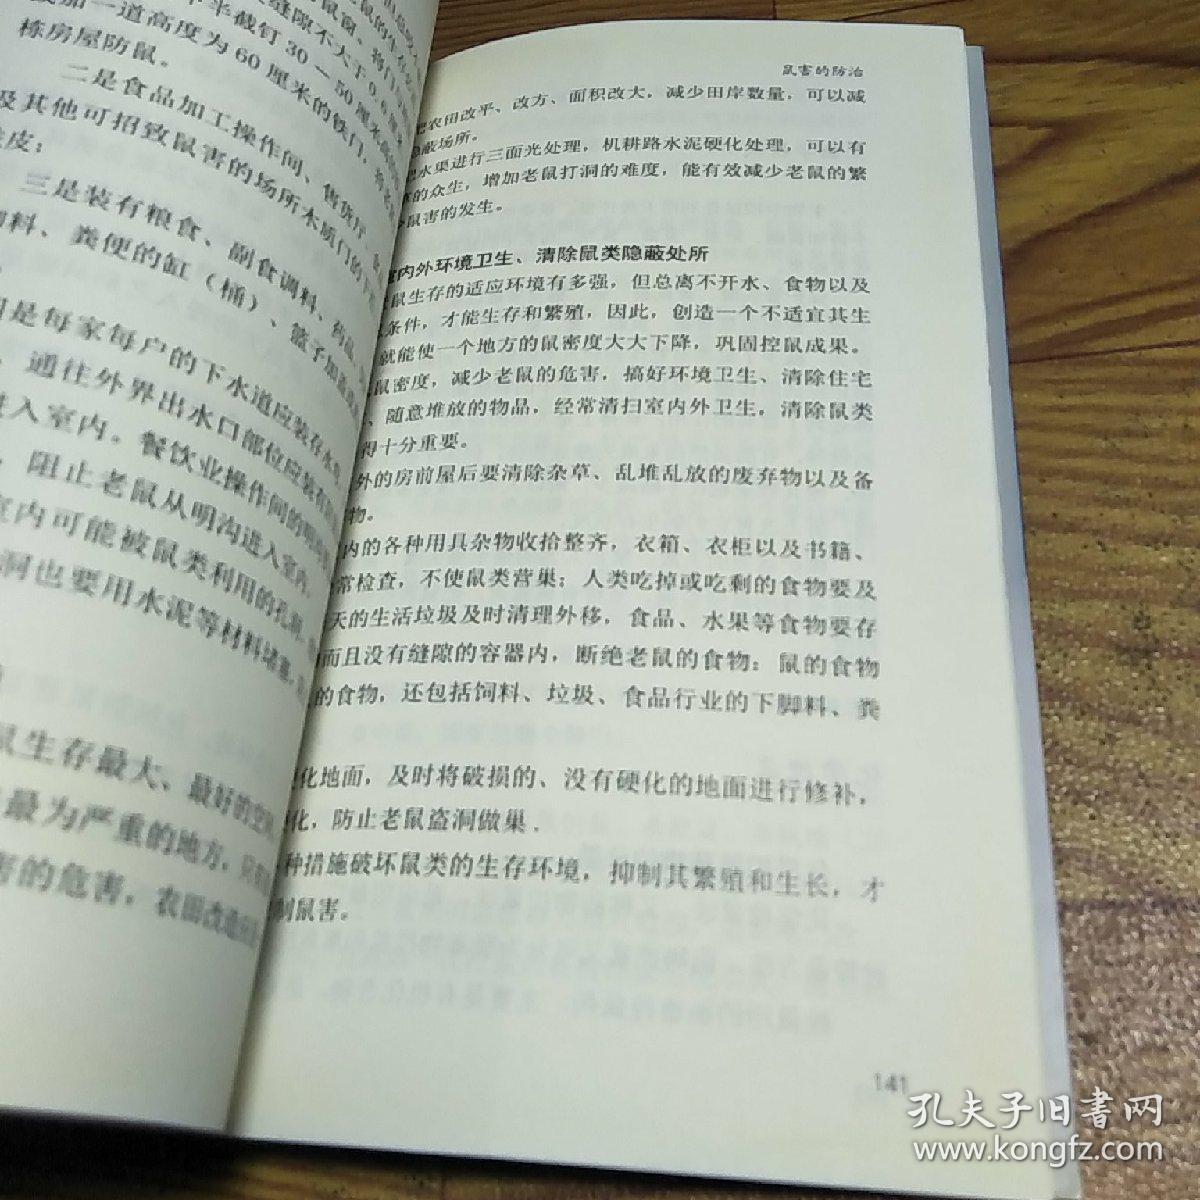 加一道高度为60厘米的铁门，
栋房屋防鼠。
二是食品加工操作间、售货厅、
及其他可招致鼠害的场所木质门的下
皮；
三是装有粮食、副食调料、药品、
料、粪便的缸（桶）、篮子加盖
是每家每户的下水道应装存水
通往外界出水口部位应装有
进入室内。餐饮业操作间的明
阻止老鼠从明沟进入室内。
室内可能被鼠类利用的孔
洞也要用水泥等材料堵塞，
鼠生存最大、最好的空
最为严重的地方，只
害的危害，农田改造
鼠害的防治
把农田改平、改方、面积改大，减少田岸数量，可以减
隐蔽场所。
把水渠进行三面光处理，机耕路水泥硬化处理，可以有
的众生，增加老鼠打洞的难度，能有效减少老鼠的繁
鼠害的发生。
室内外环境卫生、清除鼠类隐蔽处所
鼠生存的适应环境有多强，但总离不开水、食物以及
条件，才能生存和繁殖，因此，创造一个不适宜其生
就能使一个地方的鼠密度大大下降，巩固控鼠成果。
鼠密度，减少老鼠的危害，搞好环境卫生、清除住宅
、随意堆放的物品，经常清扫室内外卫生，清除鼠类
得十分重要。
外的房前屋后要清除杂草、乱堆乱放的废弃物以及备
物。
内的各种用具杂物收拾整齐，衣箱、衣柜以及书籍、
常检查，不使鼠类营巢；人类吃掉或吃剩的食物要及
天的生活垃圾及时清理外移，食品、水果等食物要存
而且没有缝隙的容器内，断绝老鼠的食物：鼠的食物
的食物，还包括饲料、垃圾、食品行业的下脚料、粪
化地面，及时将破损的、没有硬化的地面进行修补，
化，防止老鼠盗洞做巢.
种措施破坏鼠类的生存环境，抑制其繁殖和生长，才
制鼠害。
141
孔夫子旧书网
www.kongfz.com